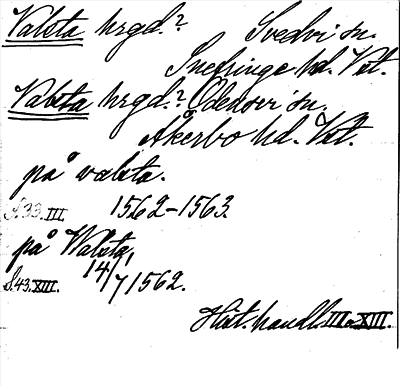 Valsta hrgd.? Svedvi sn.
Snefringe hd. Vstl.
Valsta hrgd.? Odensvi sn.
Åkerbo hd. Vstl.
på walsta.
S. 33. III. 1562-1563.
på Walsta,
S. 43. XIII. 14/7 1562.
Hist. handl. III o XIII.